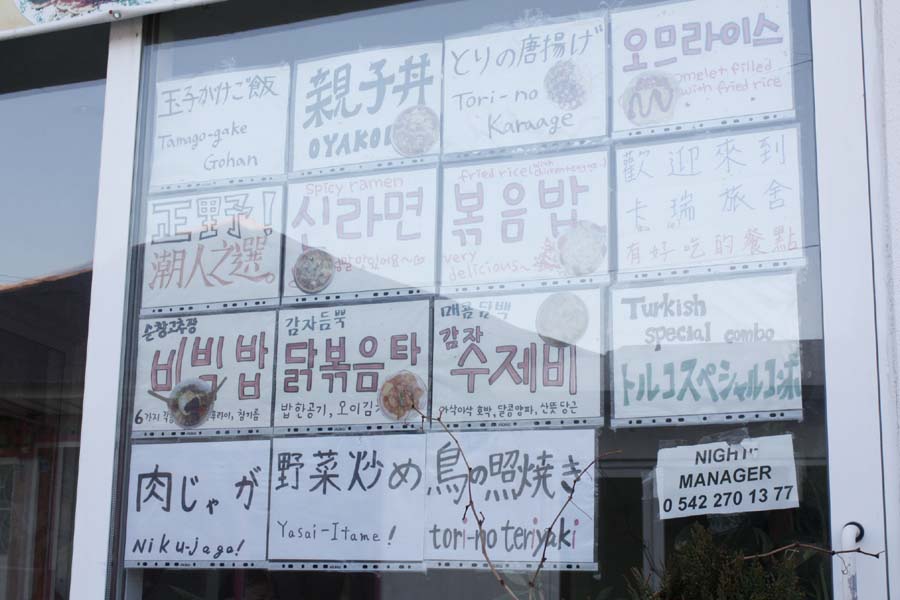 玉子かけご飯
Tamago-gake
Gohan
親子丼
OYAKO
とりの唐揚げ
Tori-no
Karaage
오므라이스
omelet filled
with fried rice
正野子!
潮人之選。
spicy ramen
신라면
fried rice(with
볶음밥
very
delicious~
歡迎來到
卡瑞旅舍
有好吃的餐點
순창고추장
비빔밥
감자듬뿍
닭볶음탕
밥한공기, 오이김
매콤담백
감자
수제비
아삭아삭 호박, 달콤양파, 산뜻당근
Turkish
special combo
トルコスペシャルコンボ
肉じゃが
Niku-jaga!
野菜炒め
Yasai-Itame!
鳥の照焼き
tori-no teriyaki
NIGHT
MANAGER
0 542 270 13 77